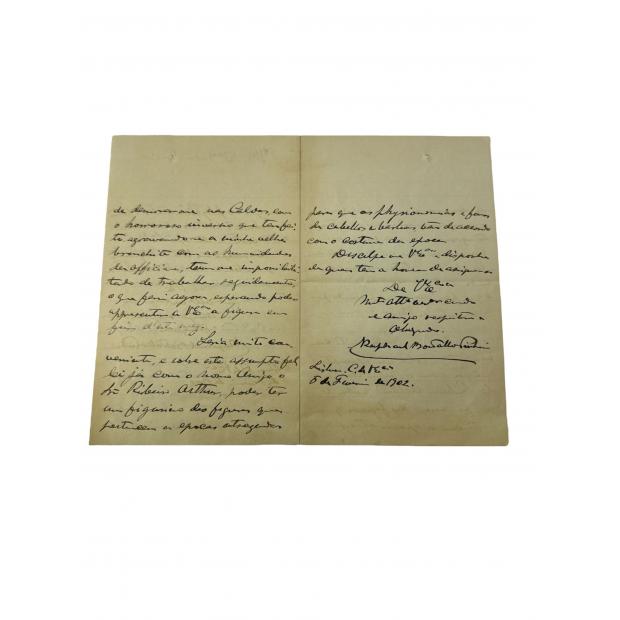 de demorar-me nas Caldas, com
o horroroso inverno que tem fei
to aggravando-se a minha velha
bronchite com as humidades
das officinas, tem-me impossibili
tado de trabalhar seguidamente,
o que farei agora, esperando poder
apresentar a V. Exª a figura em
d'este mez.
Seria muito con
veniente, e sobre este assumpto fal
lei já com o nosso Amigo o
Sr. Ribeiro Arthur, poder ter
um figurino das figuras que
pertencem as epocas
para que as physionomias e
de cabellos e barbas vão de accordo
com o costume da epoca.
Desculpe-me V. Exª, e disponha
de quem tem a honra de assignar-se
De V. Exª
Mtº attº
e amigo respeitoso
obrigado.
Raphael Bordallo Pinheiro
Lisboa
5 de Fevereiro de 1902.